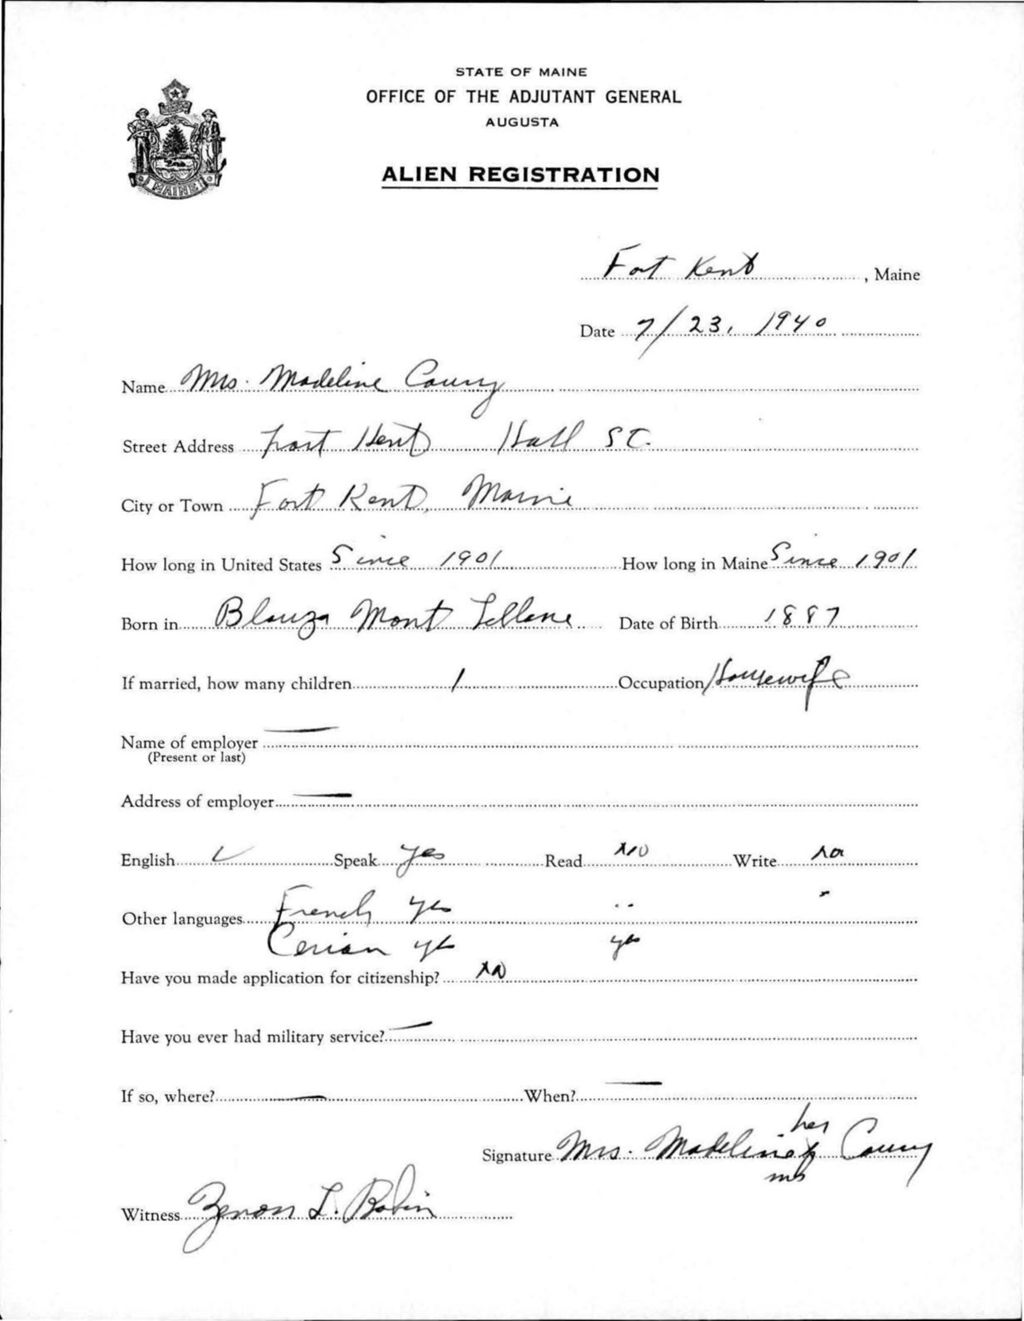 STATE OF MAINE
OFFICE OF THE ADJUTANT GENERAL
AUGUSTA
ALIEN REGISTRATION
MAINE
Fort Kent, Maine
Date 7/23, 1940
Name Mrs. Madeline Coury
Street Address Fort Kent Hall St.
City or Town Fort Kent, Maine
How long in United States Since 1901 How long in Maine Since 1901
Born in Blauza Mont Lellane Date of Birth 1887
If married, how many children 1 Occupation Housewife
Name of employer —
(Present or last)
Address of employer —
English ✓ Speak yes Read No Write No
Other languages French yes " "
Cerian yes yes
Have you made application for citizenship? No
Have you ever had military service? —
If so, where? — When? —
her
Signature Mrs. Madeline x Coury
Witness Zenon L. Robin